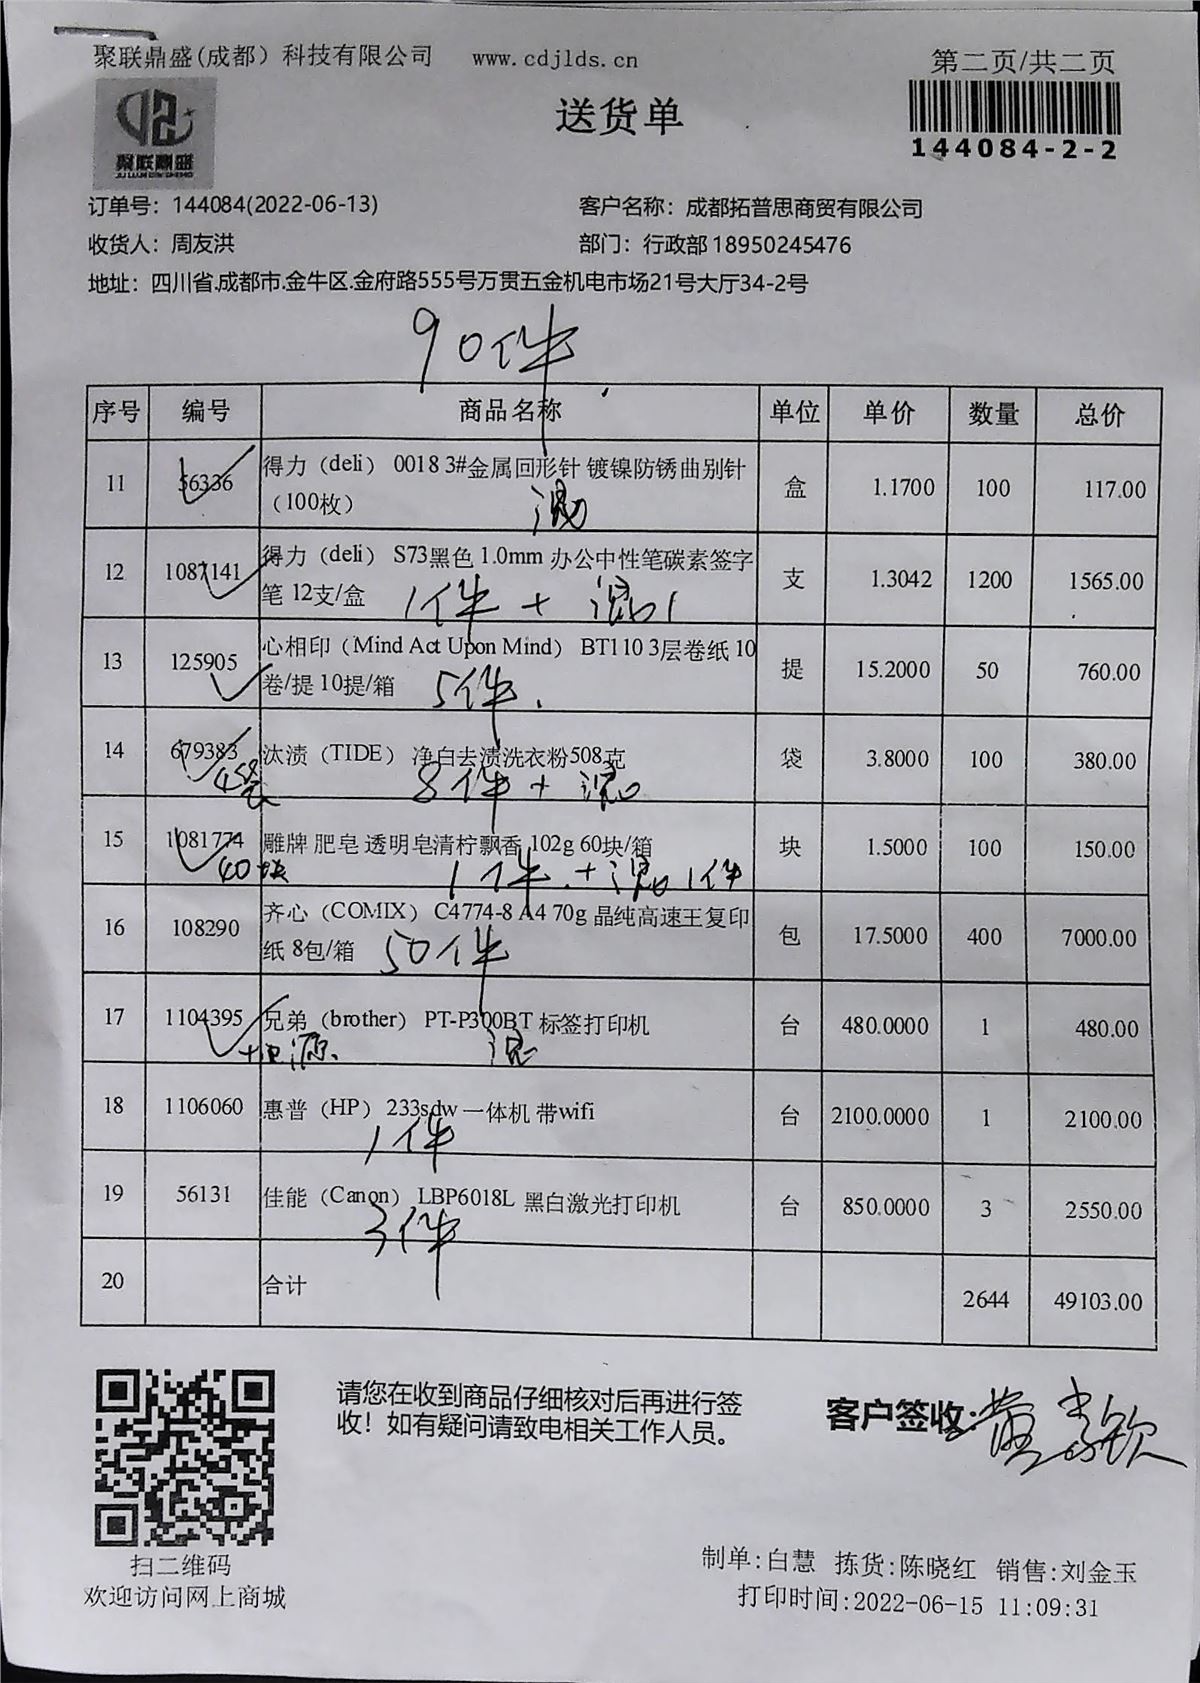 聚联鼎盛(成都）科技有限公司 www.cdjlds.cn
第二页/共二页
聚联鼎盛
JU LIAN DING SHENG
送货单
144084-2-2
订单号：144084(2022-06-13) 客户名称：成都拓普思商贸有限公司
收货人：周友洪 部门：行政部 18950245476
地址：四川省.成都市.金牛区.金府路555号万贯五金机电市场21号大厅34-2号
90件
序号 编号 商品名称 单位 单价 数量 总价
11 56336 得力（deli） 0018 3#金属回形针 镀镍防锈曲别针 盒 1.1700 100 117.00
（100枚）
混
12 1087141 得力（deli） S73黑色 1.0mm 办公中性笔碳素签字 支 1.3042 1200 1565.00
笔 12支/盒 1件 + 混1
13 125905 心相印（Mind Act Upon Mind） BT110 3层卷纸 10 提 15.2000 50 760.00
卷/提 10提/箱 5件.
14 679383 汰渍（TIDE） 净白去渍洗衣粉508克 袋 3.8000 100 380.00
8件 + 混
15 1081774 雕牌 肥皂 透明皂清柠飘香 102g 60块/箱 块 1.5000 100 150.00
40块 1件 + 混 1件
16 108290 齐心（COMIX） C4774-8 A4 70g 晶纯高速王复印 包 17.5000 400 7000.00
纸 8包/箱 50件
17 1104395 兄弟（brother） PT-P300BT 标签打印机 台 480.0000 1 480.00
+电源. 混
18 1106060 惠普（HP） 233sdw 一体机 带wifi 台 2100.0000 1 2100.00
1件
19 56131 佳能（Canon） LBP6018L 黑白激光打印机 台 850.0000 3 2550.00
3件
20 合计 2644 49103.00
请您在收到商品仔细核对后再进行签
收！如有疑问请致电相关工作人员。
客户签收:
扫二维码
欢迎访问网上商城
制单:白慧 拣货:陈晓红 销售:刘金玉
打印时间:2022-06-15 11:09:31